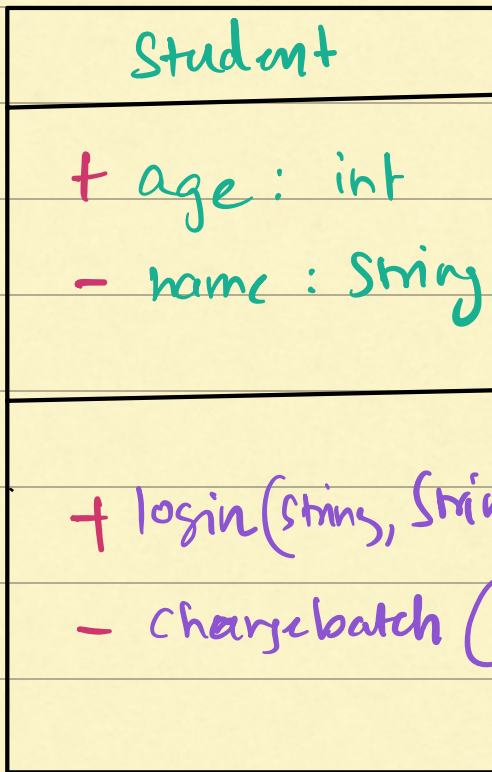 Student
+ age : int
- name : String
+ login(String, Strin
- changebatch (